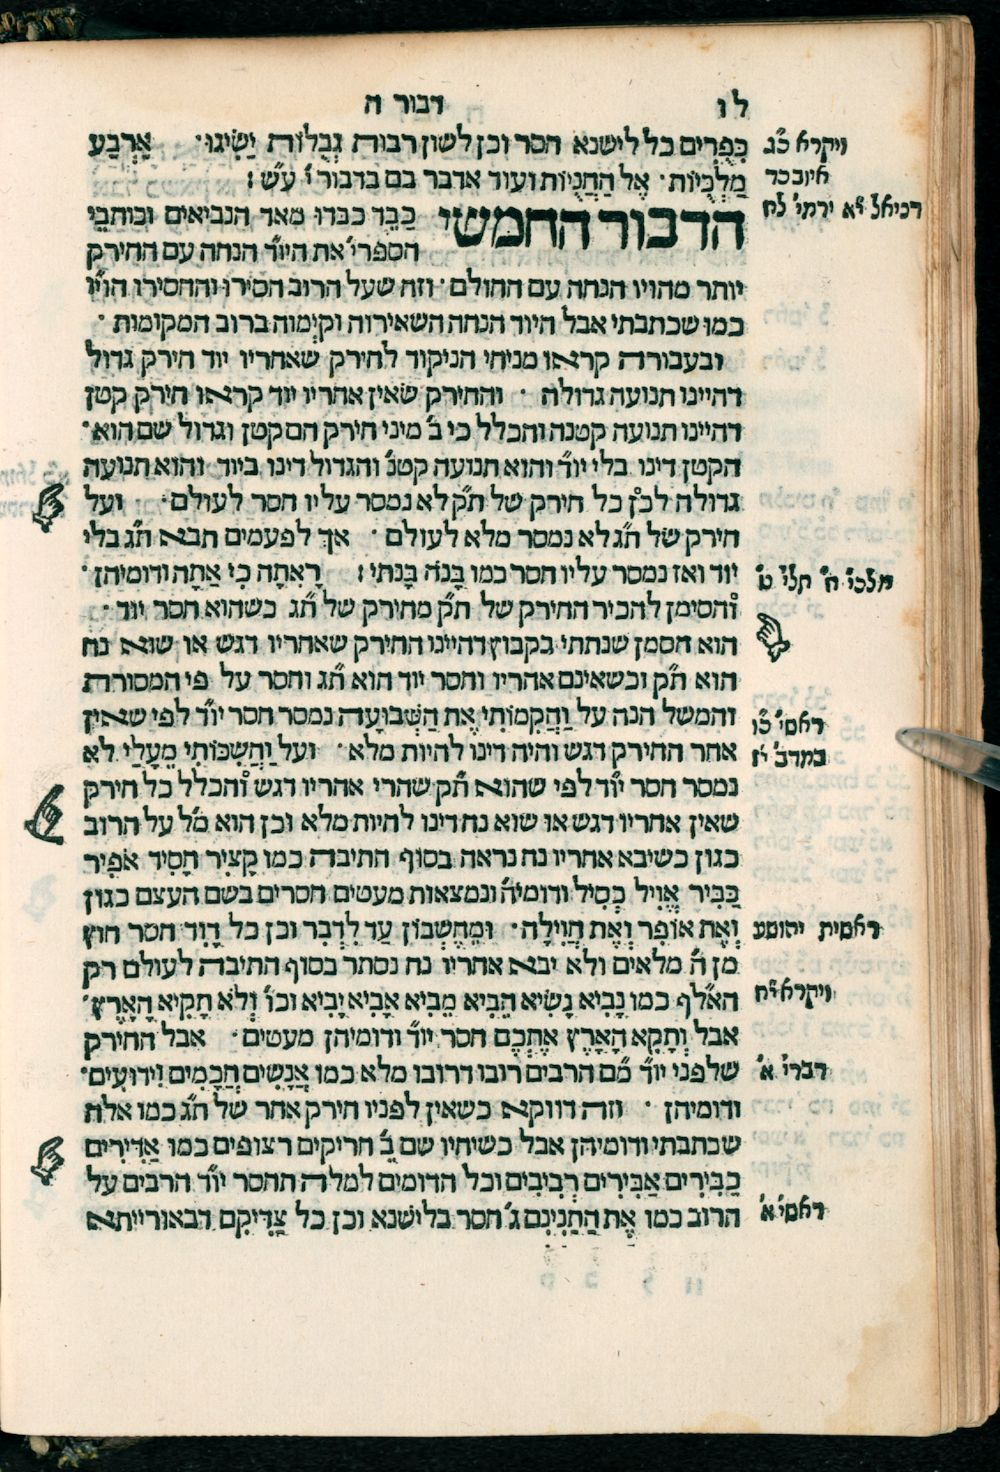 לו
דבור ה
כְּפֻרִים כל לישנא חסר וכן לשון רבות גְבֻלֹות יַשִׂיגוּ׳ אַרְבַּע
מַלְכֻּיֹות׳ אֶל הַחֲנֻיֹות ועוד אדבר בם בדבור ז֯ ע״ש׃
הדבור החמשי כַּבֵּד כבדו מאד הנביאים וכותבֵי
הספרי֯ את היו״ד הנחה עם החירק
יותר מהויו הנחה עם החולם׳ וזה שעל הרוב הסירו והחסירו הו״יו
כמו שכתבתי אבל היוד הנחה השאירוה וקיְמוה ברוב המקומות׳
ובעבורה קראו מניחי הניקוד לחירק שאחריו יוד חירק גדול
דהיינו תנועה גדולה׳ והחירק שאין אחריו יוד קראו חירק קטן
דהיינו תנועה קטנה והכלל כי ב֯ מיני חירק הם קטן וגדול שם הוא׳
הקטן דינו בלי יו״ד והוא תנועה קטנ֯ והגדול דינו ביוד והוא תנועה
גדולה לכ֯ן כל חירק של ת״ק לא נמסר עליו חסר לעולם׳ ועל
חירק של ת״ג לא נמסר מלא לעולם׳ אך לפעמים תבא ת״ג בלי
יוד ואז נמסר עליו חסר כמו בָּנֹה בָּנִתִי׃ רָאִתָה כִי אַתָה ודומיהן׳
והסימן להכיר החירק של ת״ק מחירק של ת״ג כשהוא חסר יוד׳
הוא הסמן שנתתי בקבוץ דהיינו החירק שאחריו דגש או שוא נח
הוא ת״ק וכשאינם אחריו וחסר יוד הוא ת״ג וחסר על פי המסורת
והמשל הנה על וַהֲקִמֹותִי אֶת הַשְּׁבוּעָה נמסר חסר יו״ד לפי שאין
אחר החירק דגש והיה דינו להיות מלא׳ ועל וַהֲשִׁכֹּותִי מֵעָלַי לא
נמסר חסר יו״ד לפי שהוא ת״ק שהרי אחריו דגש והכלל כל חירק
שאין אחריו דגש או שוא נח דינו להיות מלא וכן הוא מ״ל על הרוב
כגון כשיבא אחריו נח נראה בסוף התיבה כמו קָצִיר חָסִיד אֹפִיר
כַּבִּיר אֱוִיל כְּסִיל ודומיה֯ ונמצאות מעטים חסרים בשם העצם כגון
וְאֶת אֹופִר וְאֶת חֲוִילָה׳ וּמֵחֶשְׁבֹּון עַד לִדְבִר וכן כל דָּוִד חסר חוץ
מן ה֯ מלאים ולא יבא אחריו נח נסתר בסוף התיבה לעולם רק
הא״לף כמו נָבִיא נָשִׂיא הֵבִיא מֵבִיא אָבִיא יָבִיא וכו֯ וְלֹא תָקִיא הָאָרֶץ׳
אבל וְתָקִא הָאָרֶץ אֶתְכֶם חסר יו״ד ודומיהן מעטים׳ אבל החירק
שלפני יו״ד מ״ם הרבים רובו דרובו מלא כמו אֲנָשִׁים חֲכָמִים וִידוּעִים׳
ודומיהן׳ וזה דווקא כשאין לפניו חירק אחר של ת״ג כמו אלה
שכתבתי ודומיהן אבל כשיחיו שם ב֯ חריקים רצופים כמו אַדִּירִים
כַּבִּירִים אַבִּירִים רְבִיבִים וכל הדומים למלה תחסר יו״ד הרבים על
הרוב כמו אֶת הַתַנִינִם ג֯ חסר בלישנא וכן כל צַדִּיקִם דבאורייתא
ויקרא כ״ג
איוב כד
דניאל י״א ירמי׳ לח
מלכי׳ ח״ תלי׳ ט״
ראשי׳ כ״ו
במדב׳ י״ז
ראשית יהושע
ויקרא י״ח
דברי׳ א׳
ראשי׳ א׳